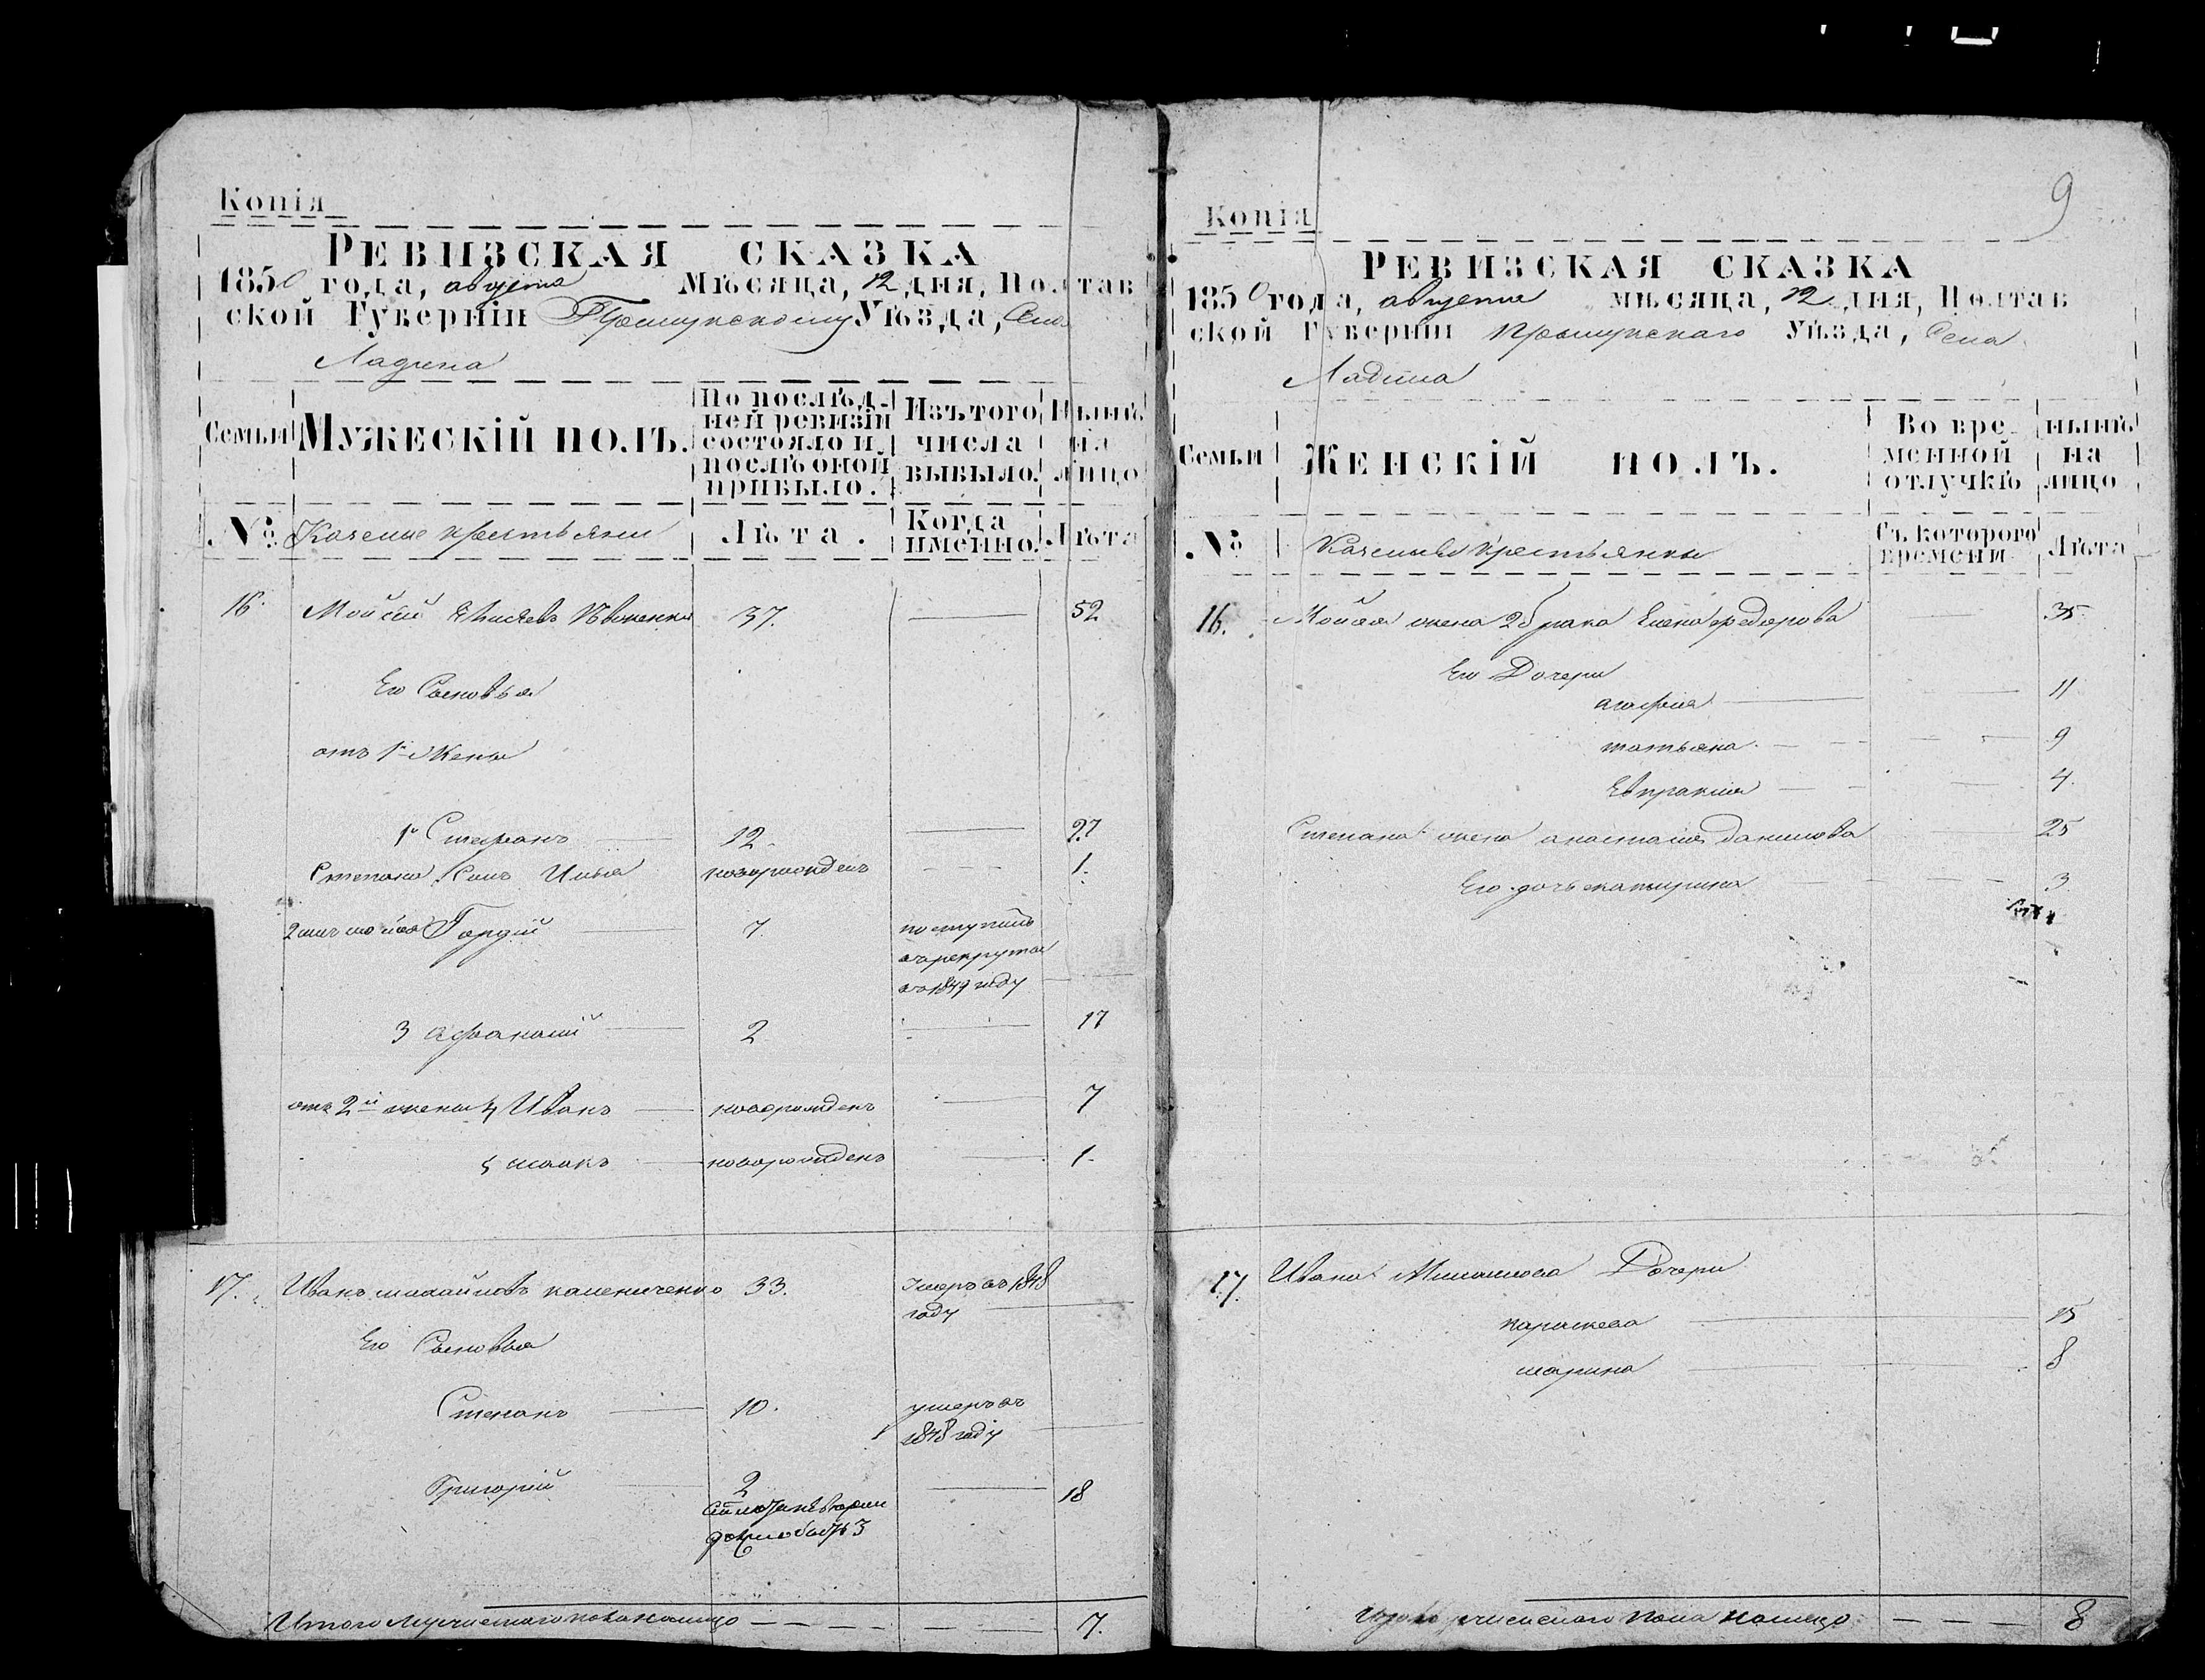 Копія
РЕВИЗСКАЯ СКАЗКА
1850 года, августа Мѣсяца, 12 дня, Полтав
ской Губерніи Прилукскому Уѣзда, Села
Ладина
Семьи
МУЖЕСКІЙ ПОЛЪ.
По послѣд-
ней ревизіи
состояло и
послѣ оной
прибыло.
Изъ того
числа
выбыло.
Нынѣ
на
лицо
№
Казеные крестьяни
Лѣта.
Когда
именно.
Лѣта
16. Мойсей Елисѣевъ 37. 52
Его Сыновья
отъ 1й Жены
1й Стефанъ 12. 27
Степана Сынъ Илья новорожденъ 1.
Гордій 7. поступилъ
въ рекруты
въ 1849 году
3 афанасій 2 17
отъ 2й жены 4 Иванъ новорожденъ 7
5 исаакъ новорожденъ 1.
17. Иванъ михайловъ камениченко 33. Умеръ въ 1848
году
Его Сыновья
Степанъ 10. умеръ въ
1848 году
Григорій 2 18
3
Итого Мужескаго пола налицо 7.
9
Копія
РЕВИЗСКАЯ СКАЗКА
1850 года, августа мѣсяца, 12 дня, Полтав
ской Губерніи Прилукскаго Уѣзда, Села
Ладина
Семьи
ЖЕНСКІЙ ПОЛЪ.
Во вре-
менной
отлучкѣ
нынѣ
на
лицо
№
Казенные крестьянки
Съ которого
времени
Лѣта
16. Мойсея жена 2 брака Елена федорова 35
Его Дочери
агафия 11
татьяна 9
Евпраксия 4.
Степана жена анастасия данилова 25
Его дочь катерина 3
17. Ивана Михайлова Дочери
параскева 15
марина 8
Итого женскаго пола налицо 8